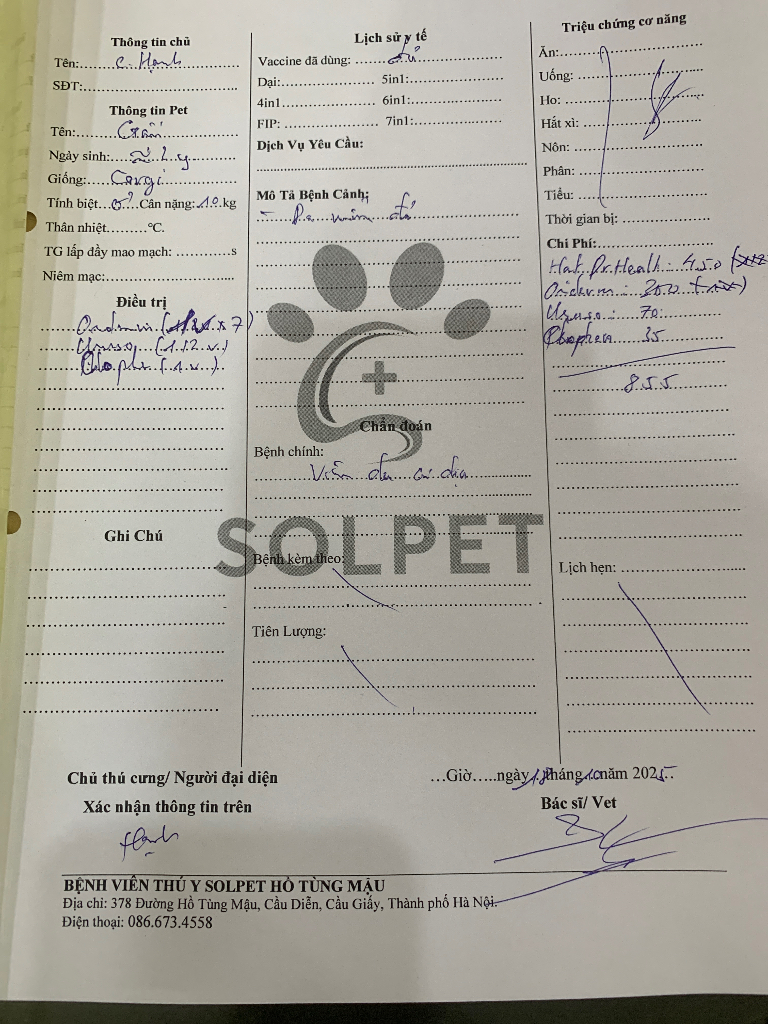 Thông tin chủ
Tên: C. Hạnh
SĐT:
Thông tin Pet
Tên:
Ngày sinh: 2 y
Giống: Corgi
Tính biệt ♂ Cân nặng: 10 kg
Thân nhiệt °C.
TG lấp đầy mao mạch: s
Niêm mạc:
Điều trị
(x 7)
(1/2 v)
(1 v)
Ghi Chú
Lịch sử y tế
Vaccine đã dùng: đủ
Dại: 5in1:
4in1 6in1:
FIP: 7in1:
Dịch Vụ Yêu Cầu:
Mô Tả Bệnh Cảnh:
- Da đỏ
SOLPET
Chẩn đoán
Bệnh chính:
Viêm da cơ địa
Bệnh kèm theo:
Tiên Lượng:
Triệu chứng cơ năng
Ăn:
Uống:
Ho:
Hắt xì:
Nôn:
Phân:
Tiểu:
Thời gian bị:
Chi Phí:
Hạt Dr.Health: 450
70
35
855
Lịch hẹn:
Chủ thú cưng/ Người đại diện
Xác nhận thông tin trên
Hạnh
…Giờ…..ngày 18 tháng 10 năm 2025
Bác sĩ/ Vet
BỆNH VIỆN THÚ Y SOLPET HỒ TÙNG MẬU
Địa chỉ: 378 Đường Hồ Tùng Mậu, Cầu Diễn, Cầu Giấy, Thành phố Hà Nội.
Điện thoại: 086.673.4558